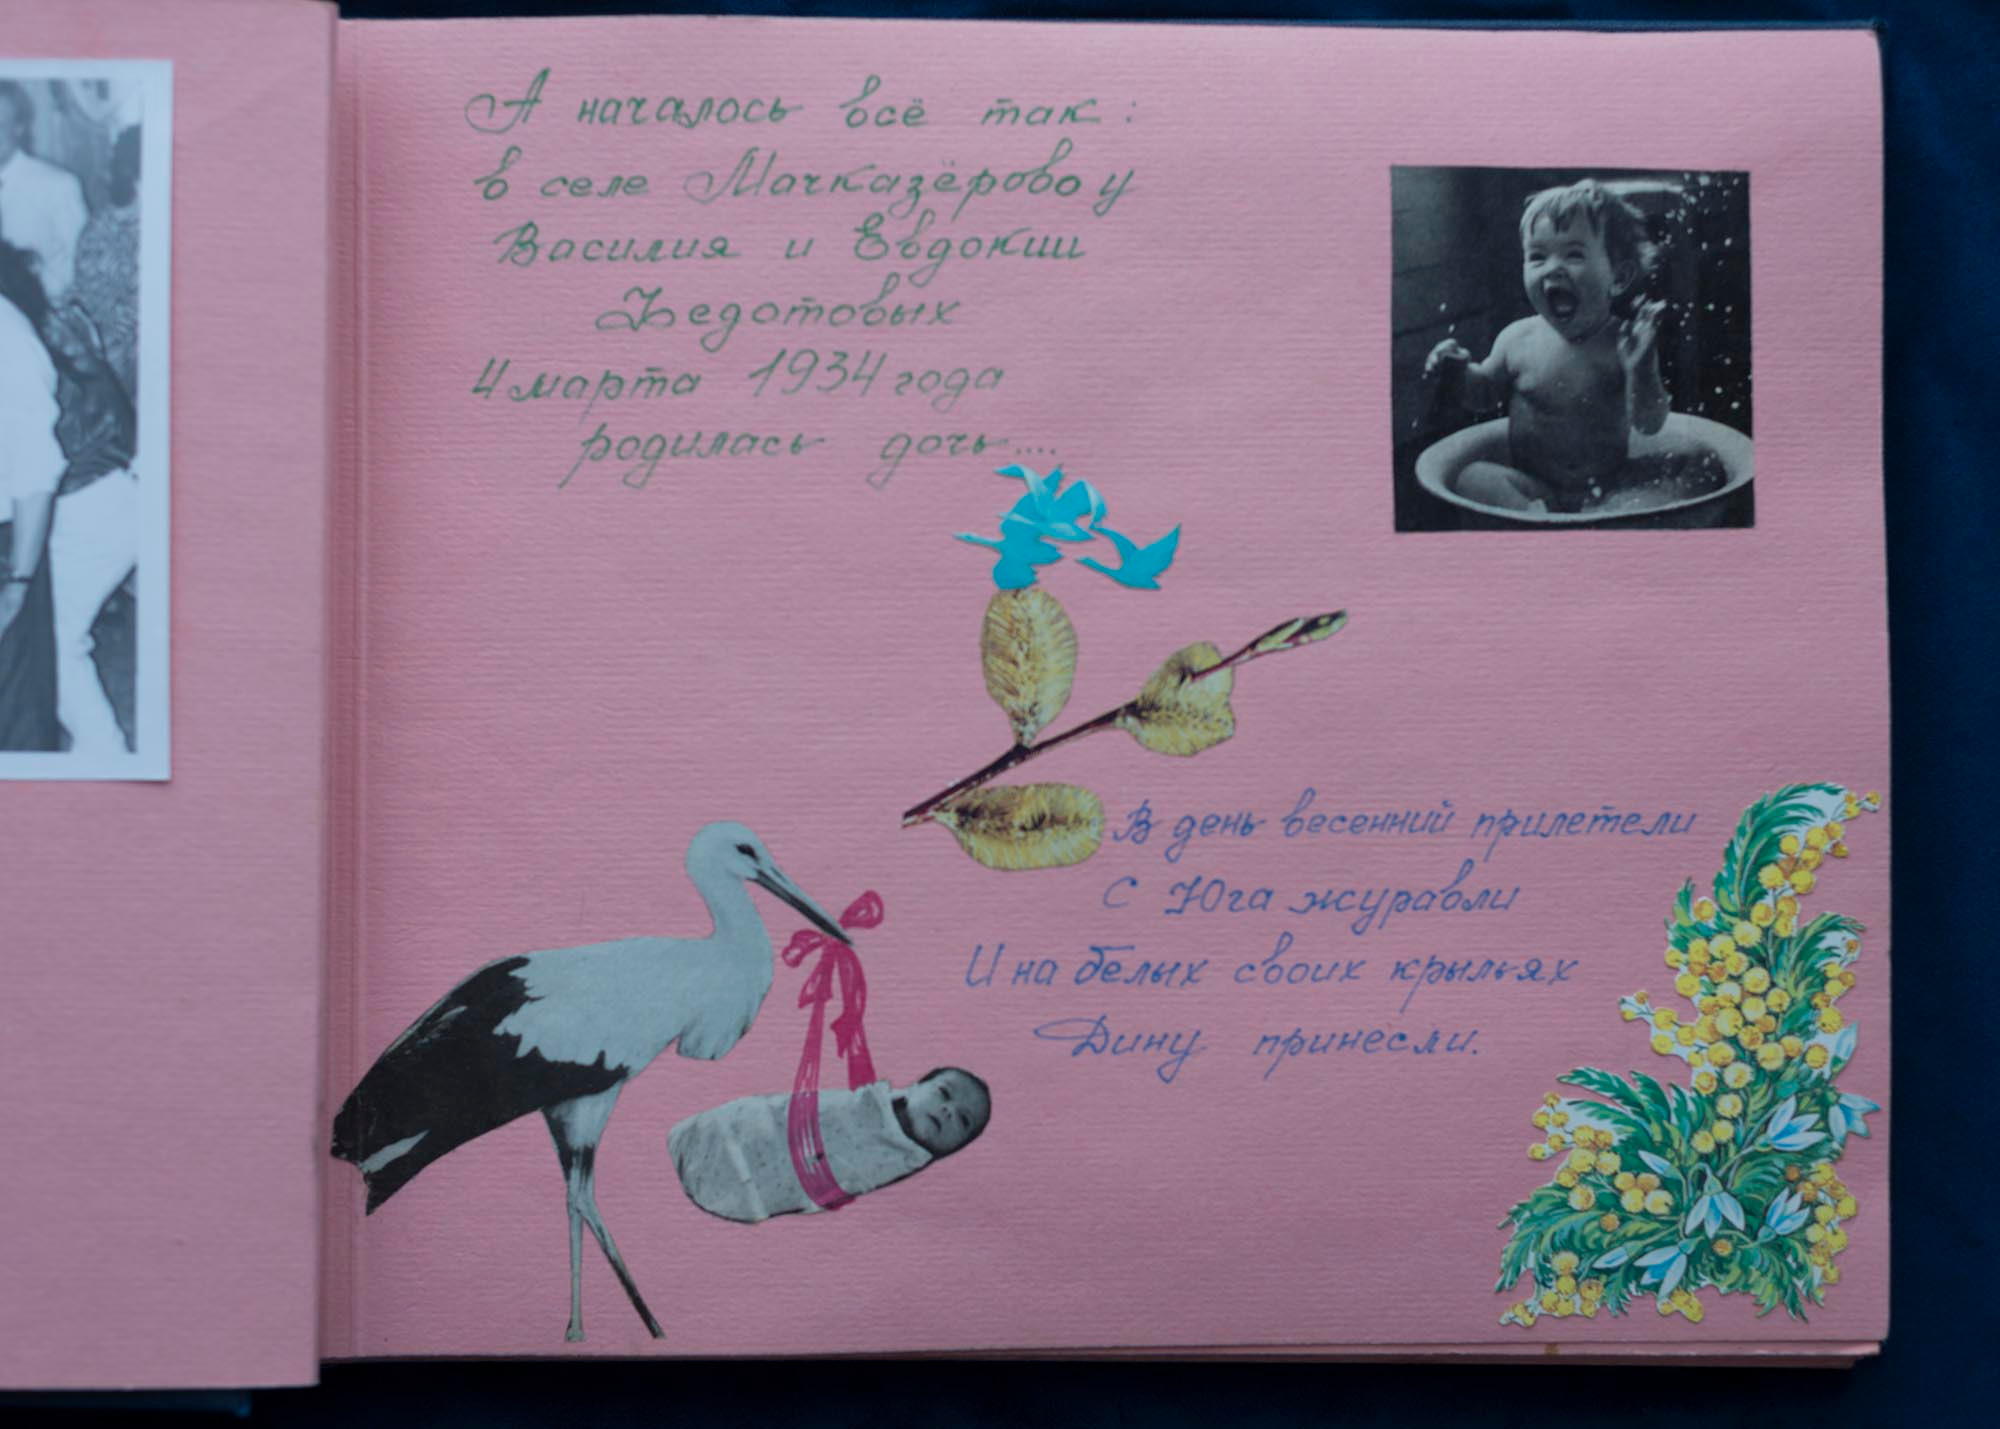 А началось всё так:
в селе Мачказёрово у
Василия и Евдокии
Федотовых
4 марта 1934 года
родилась дочь....
В день весенний прилетели
С Юга журавли
И на белых своих крыльях
Дину принесли.